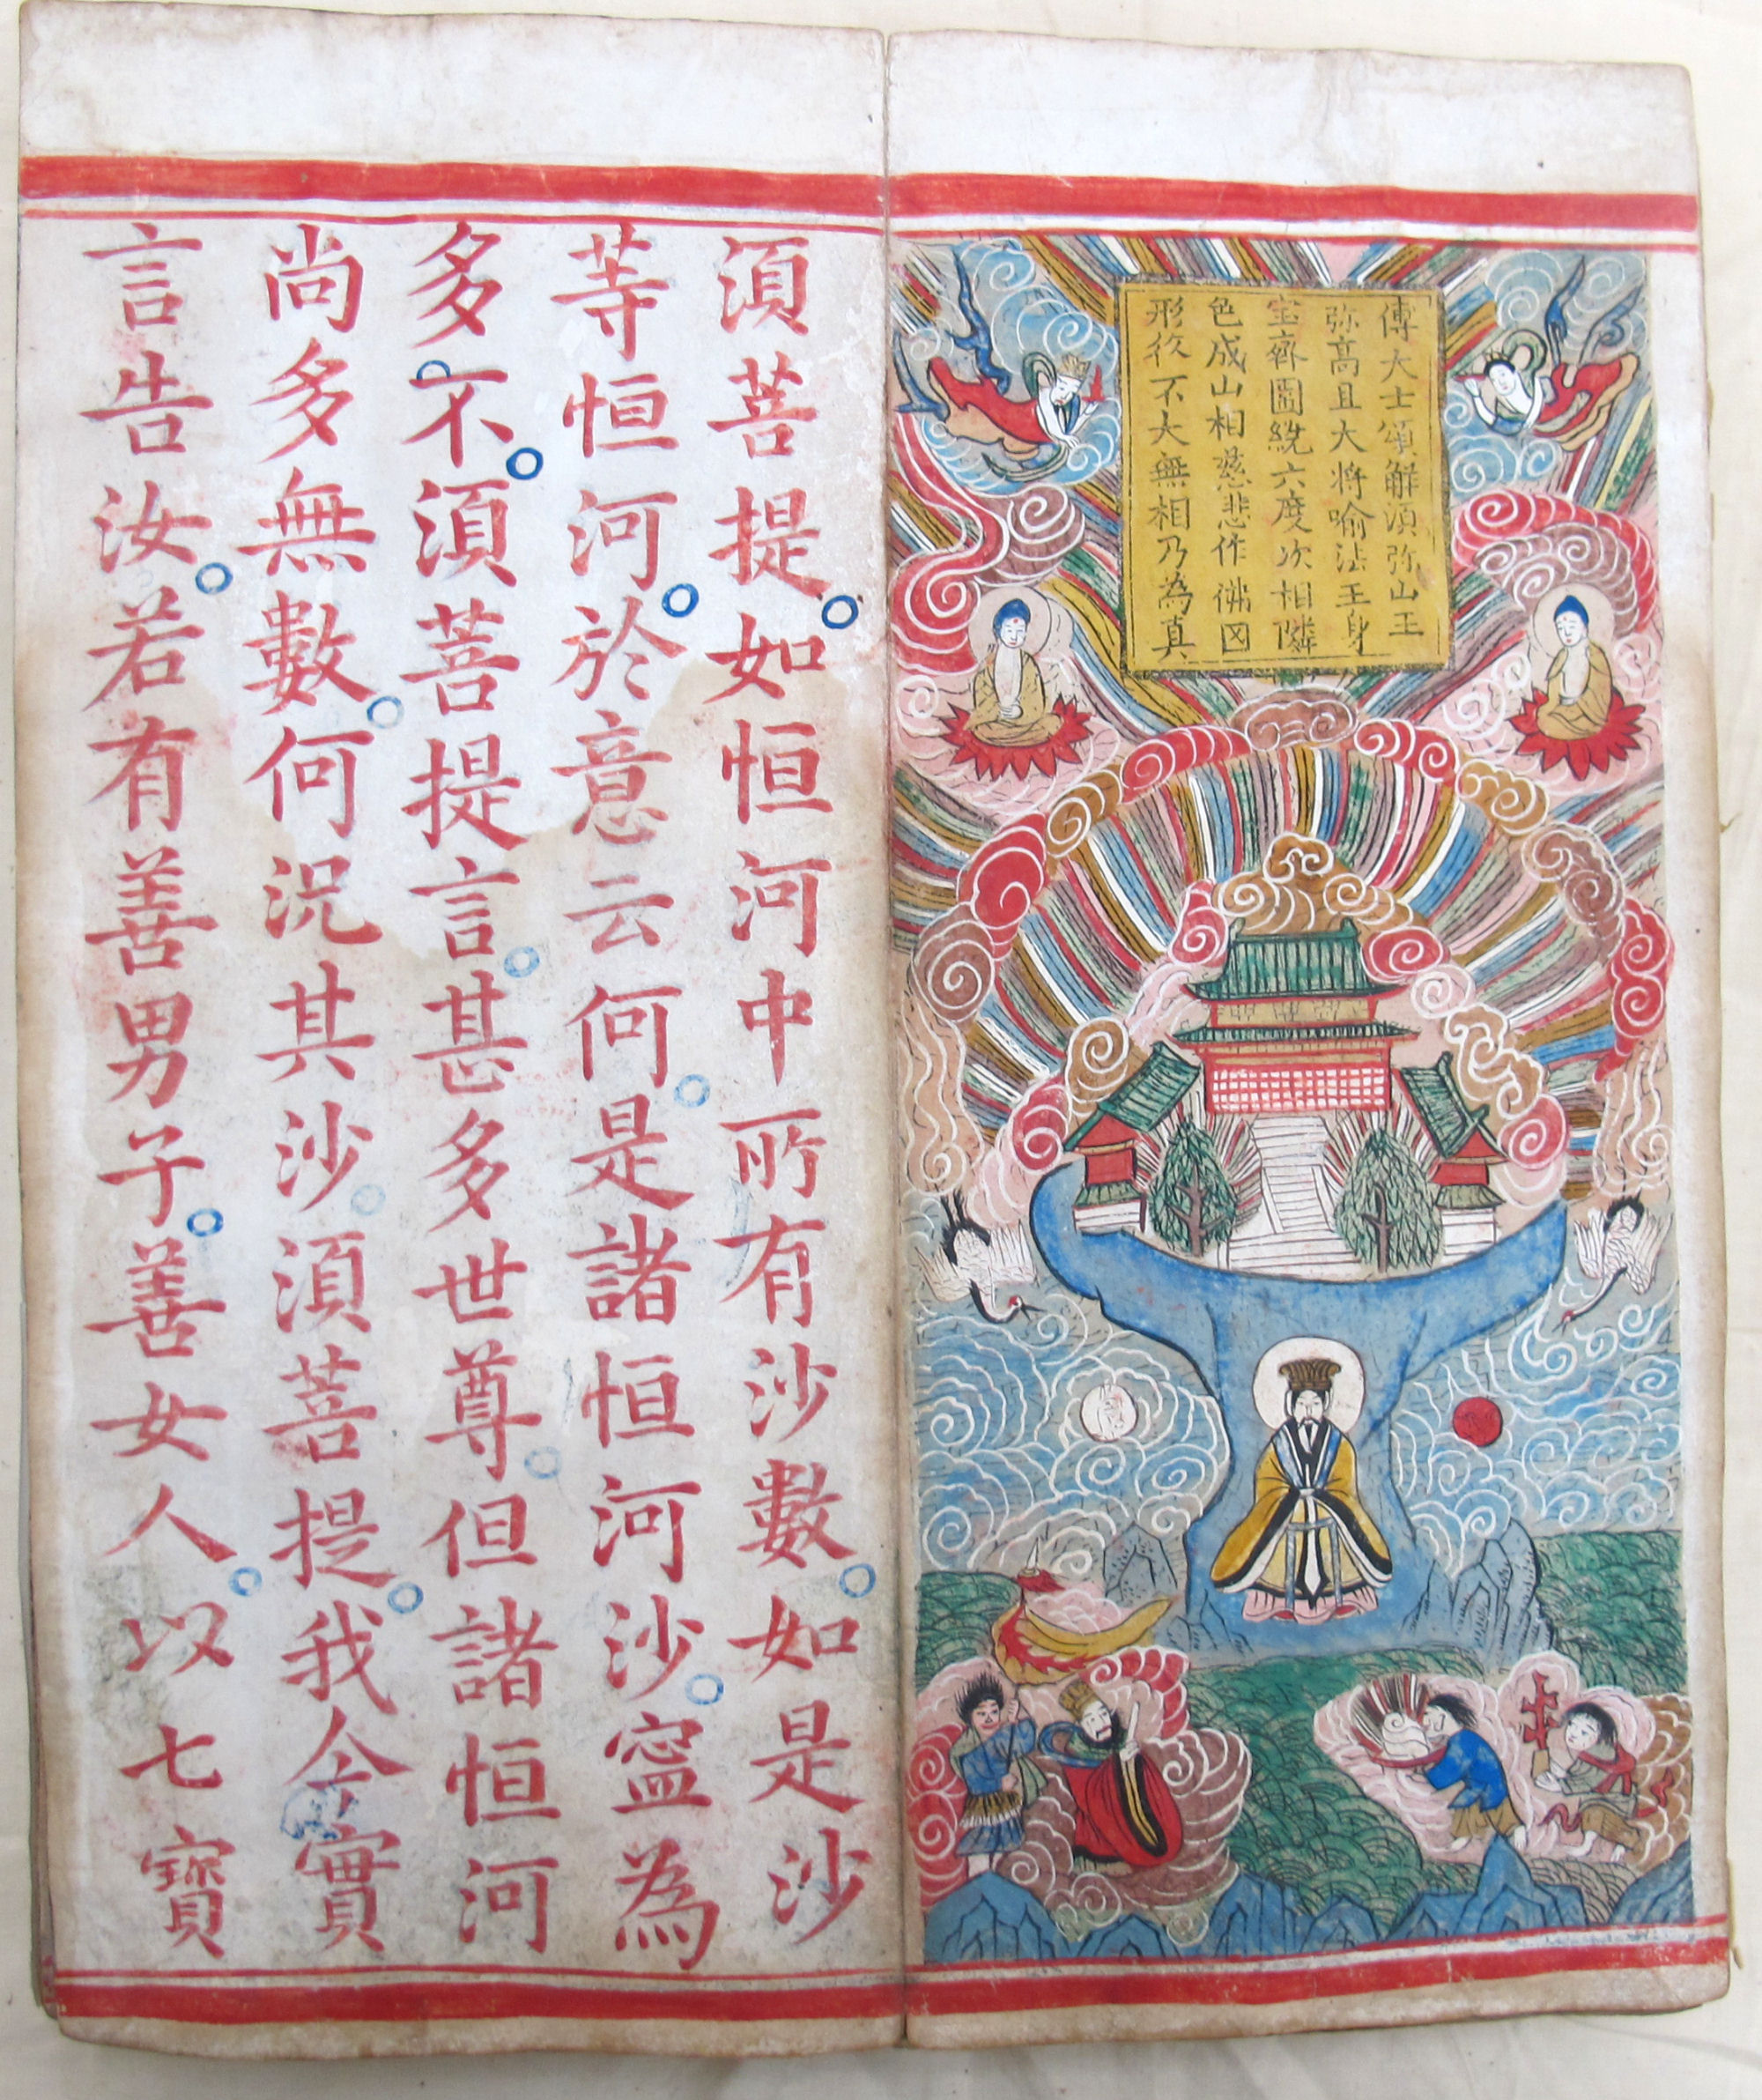 傅大士頌解湏弥山王
弥高且大将喻法王身
宝齐圍繞六度次相隣
色成山相慈悲作佛因
形役不大無相乃為真
湏菩提如恒河中所有沙數如是沙
等恒河於意云何是諸恒河沙寍為
多不湏菩提言甚多世尊但諸恒河
尚多無數何況其沙湏菩提我今實
言告汝若有善男子善女人以七寶